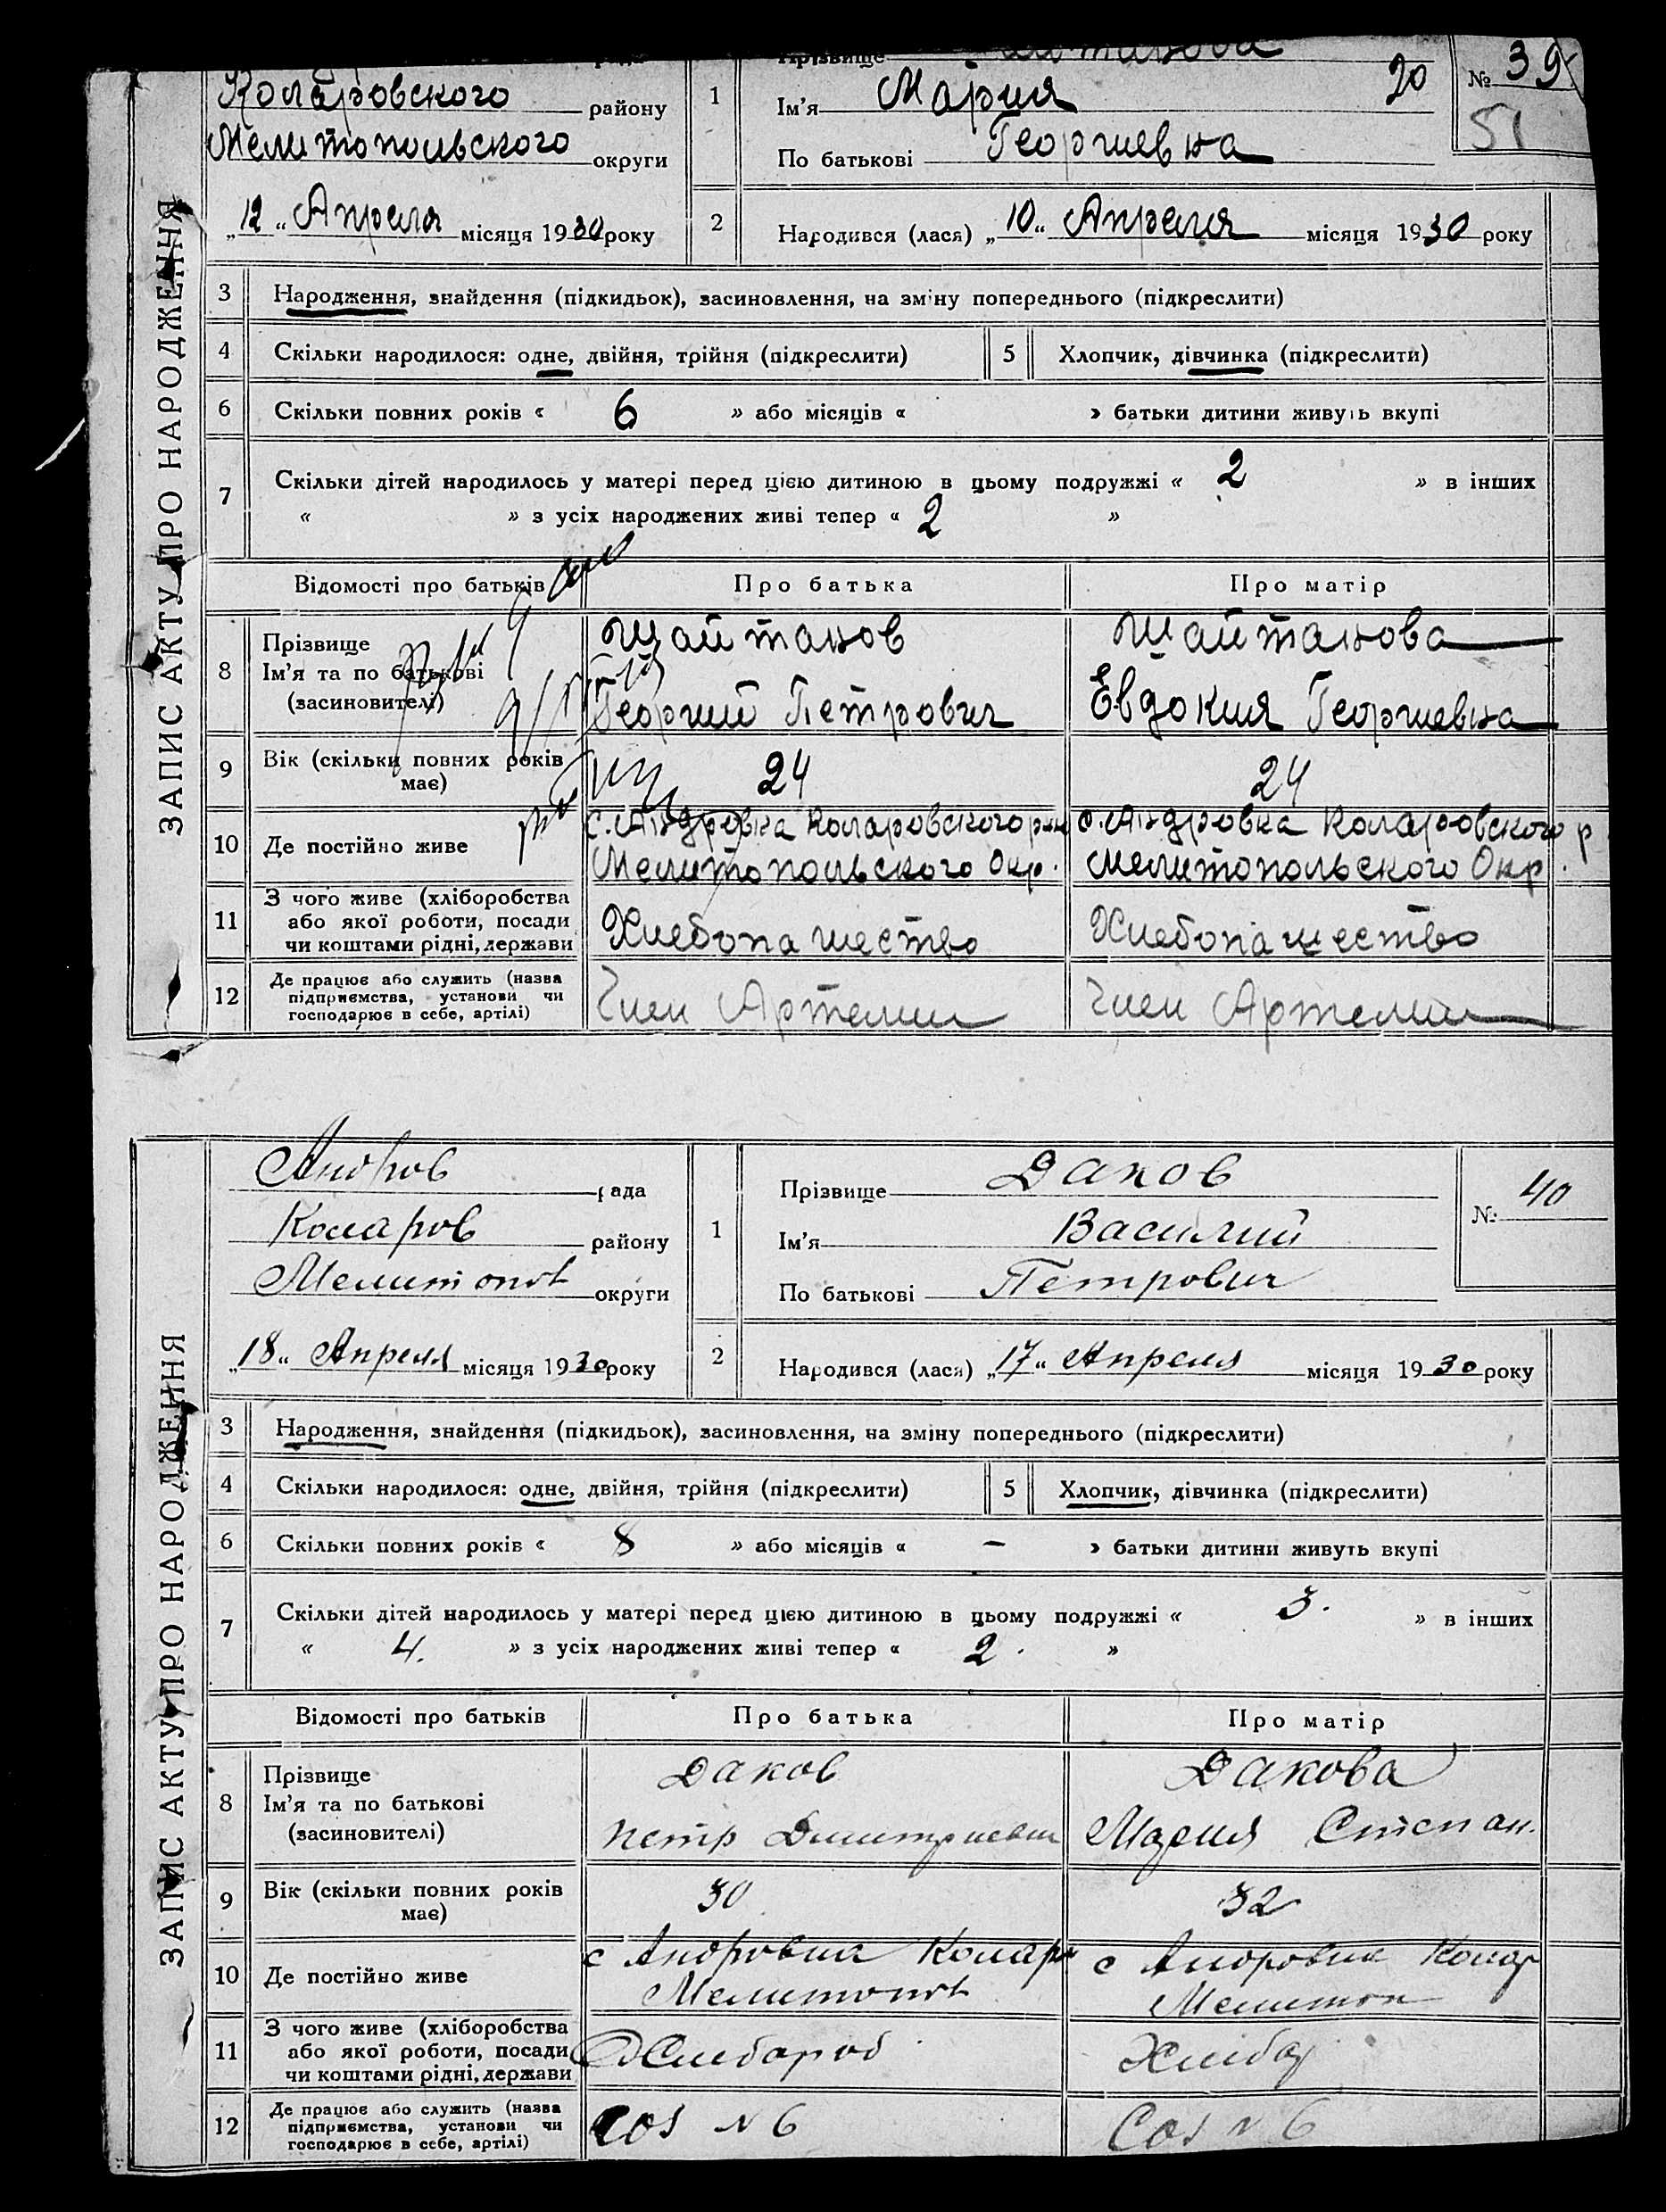 Коларовского району
Мелитопольского округи
„12“ Апреля місяця 1930 року
1
Прізвище
Ім'я Мария
20
По батькові Георгиевна
№ 39
51
2
Народився (лася) „10“ Апреля місяця 1930 року
ЗАПИС АКТУ ПРО НАРОДЖЕННЯ
3 Народження, знайдення (підкидьок), засиновлення, на зміну попереднього (підкреслити)
4 Скільки народилося: одне, двійня, трійня (підкреслити) 5 Хлопчик, дівчинка (підкреслити)
6 Скільки повних років « 6 » або місяців « » батьки дитини живуть вкупі
7 Скільки дітей народилось у матері перед цією дитиною в цьому подружжі « 2 » в інших
« » з усіх народжених живі тепер « 2 »
Відомості про батьків Про батька Про матір
8 Прізвище
Ім'я та по батькові
(засновителі)
Шайтанов
Георгий Петрович
Шайтанова
Евдокия Георгиевна
9 Вік (скільки повних років
має)
24 24
10 Де постійно живе
с. Андровка Коларовского р-на
Мелитопольского Окр.
с. Андровка Коларовского р
Мелитопольского Окр.
11 З чого живе (хліборобства
або якої роботи, посади
чи коштами рідні, держави
Хлебопашество Хлебопашество
12 Де працює або служить (назва
підприємства, установи чи
господарює в себе, артілі)
Член Артели Член Артели
Андров рада
Колларов району
Мелитоп округи
„18“ Апреля місяця 1930 року
1
Прізвище Даков
Ім'я Василий
По батькові Петрович
№ 40
2
Народився (лася) „17“ Апреля місяця 1930 року
ЗАПИС АКТУ ПРО НАРОДЖЕННЯ
3 Народження, знайдення (підкидьок), засиновлення, на зміну попереднього (підкреслити)
4 Скільки народилося: одне, двійня, трійня (підкреслити) 5 Хлопчик, дівчинка (підкреслити)
6 Скільки повних років « 8 » або місяців « – » батьки дитини живуть вкупі
7 Скільки дітей народилось у матері перед цією дитиною в цьому подружжі « 3. » в інших
« 4. » з усіх народжених живі тепер « 2. »
Відомості про батьків Про батька Про матір
8 Прізвище
Ім'я та по батькові
(засиновителі)
Даков
Петр Димитриевич
Дакова
Мария Степан.
9 Вік (скільки повних років
має)
30 32
10 Де постійно живе
с Андровка Колар
Мелитоп
с Андровка Колар
Мелитоп
11 З чого живе (хліборобства
або якої роботи, посади
чи коштами рідні, держави
Хлебороб Хлебор
12 Де працює або служить (назва
підприємства, установи чи
господарює в себе, артілі)
Соз № 6 Соз № 6